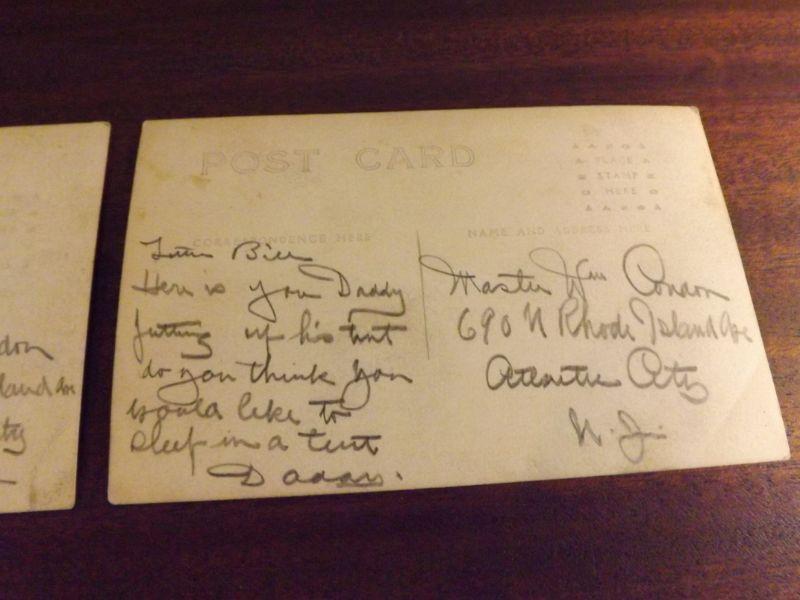 don
land ave
ity
POST CARD
PLACE
STAMP
HERE
CORRESPONDENCE HERE
NAME AND ADDRESS HERE
Little Bill
Here is you Daddy
putting up his tent
do you think you
would like to
sleep in a tent
Daddy.
Master Wm Condon
690 N Rhode Island Ave
Atlantic City
N. J.